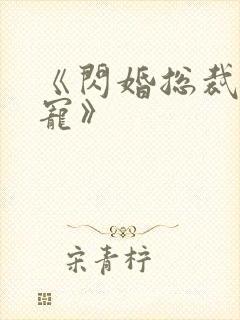 《閃婚总裁
寵》
宋青柠